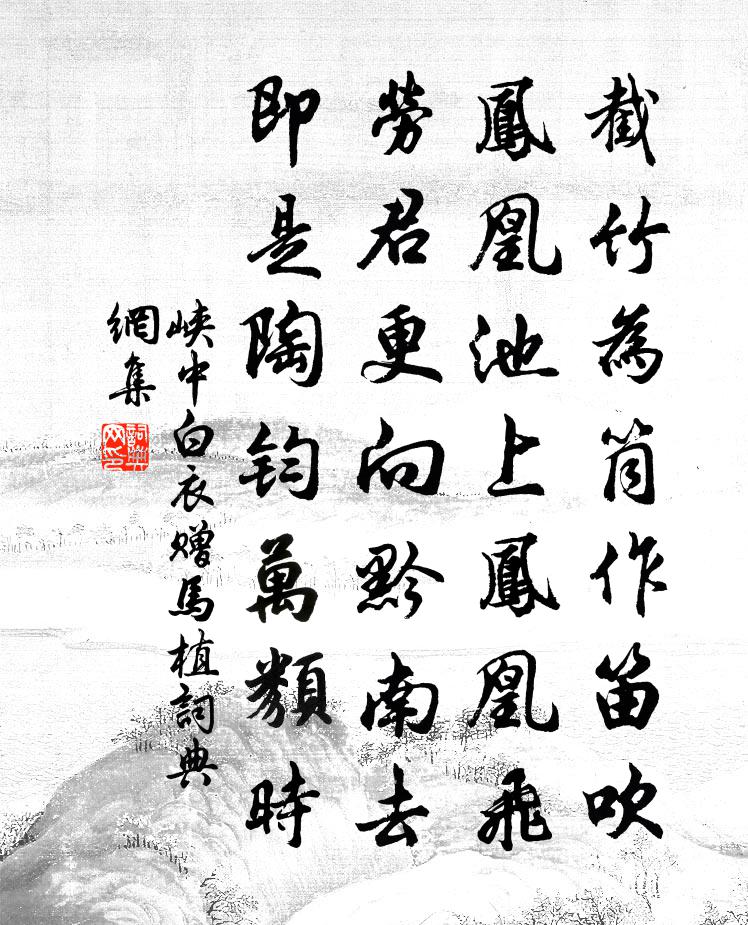 截竹為筒作笛吹
鳳凰池上鳳凰飛
勞君更向黔南去
即是陶鈞萬類時
峽中白衣贈馬植詞典
網集